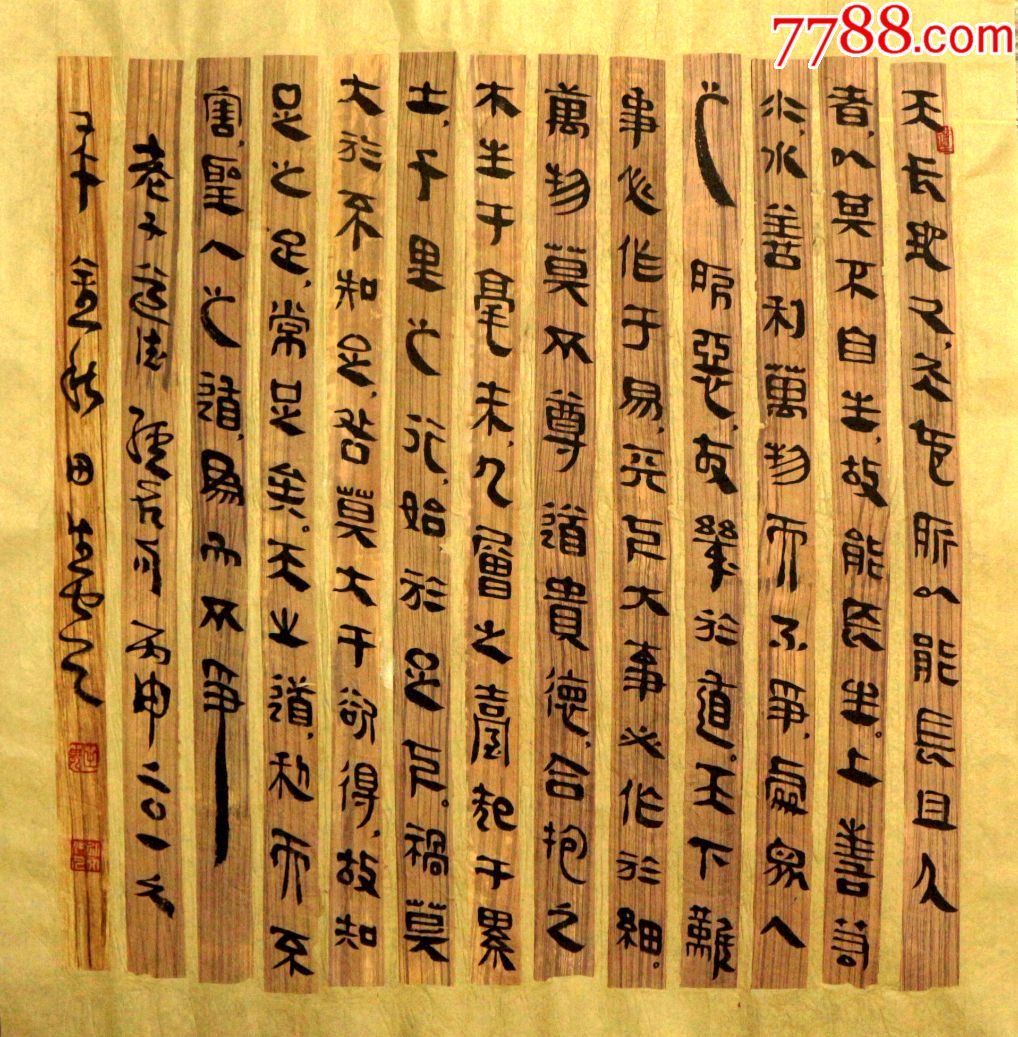 7788.com
天長地久,天地所以能長且久
者,以其不自生,故能長生。上善若
水,水善利萬物而不爭,處眾人
之所惡,故幾於道。天下難
事必作于易,天下大事必作於細。
萬物莫不尊道貴德,合抱之
木生于毫末,九層之臺起于累
土,千里之行,始於足下。禍莫
大於不知足,咎莫大于欲得,故知
足之足,常足矣。天之道,利而不
害,聖人之道,為而不爭
老子道德經句 丙申二〇一六
年 金秋 田